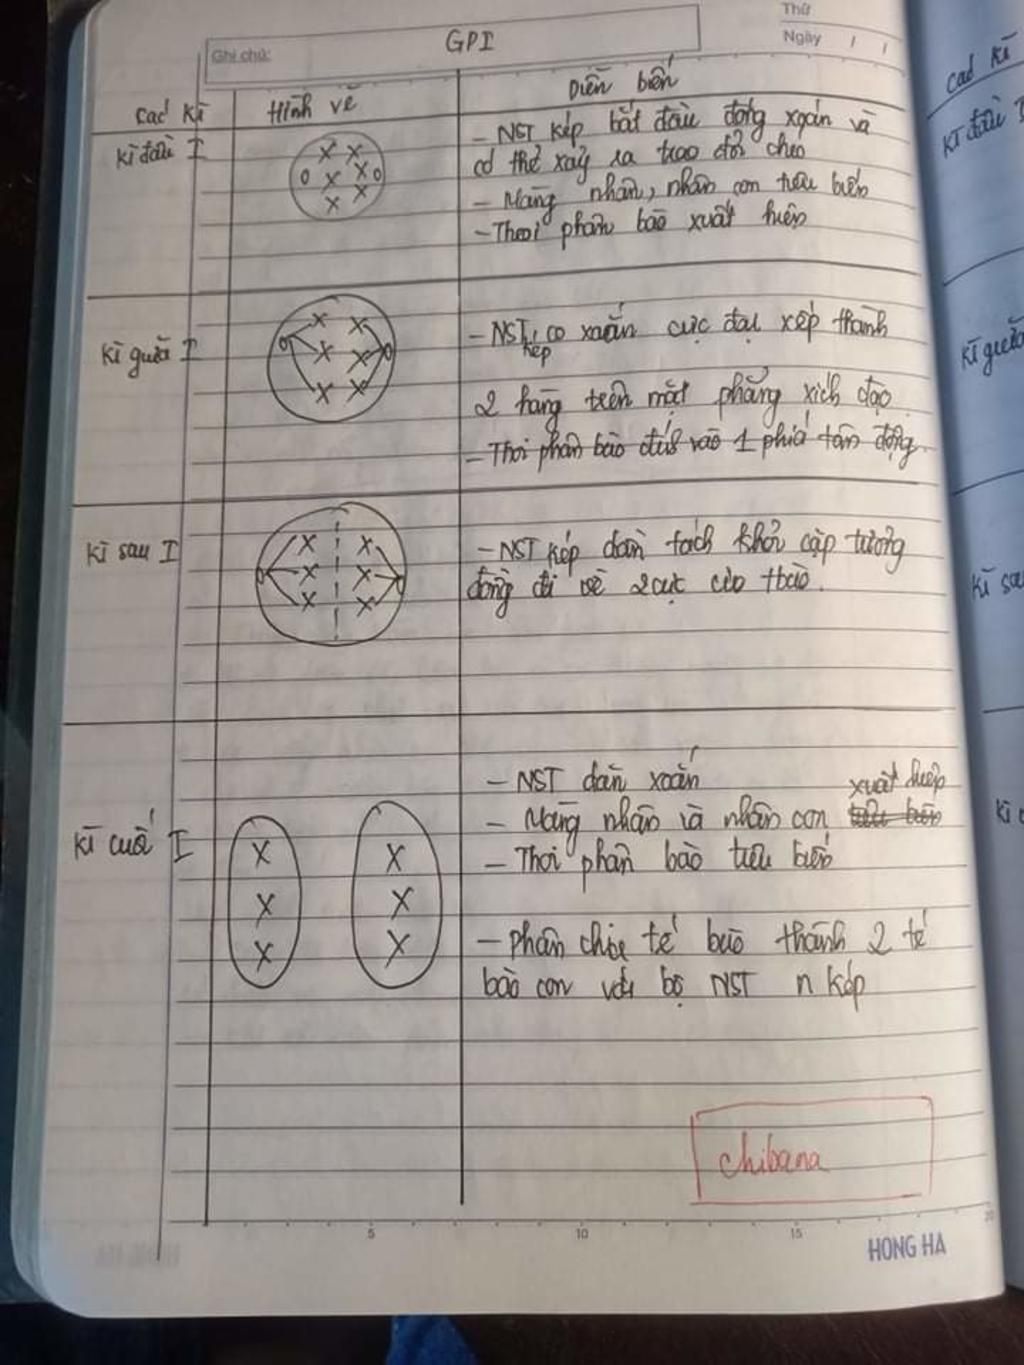 Thứ
Ghi chú: GPI
Ngày / /
Các kì Hình vẽ Diễn biến
Kì đầu I
- NST kép bắt đầu đóng xoắn và
có thể xảy ra trao đổi chéo
- Màng nhân, nhân con tiêu biến
- Thoi phân bào xuất hiện
Kì giữa I
- NST kép co xoắn cực đại xếp thành
2 hàng trên mặt phẳng xích đạo
- Thoi phân bào đính vào 1 phía tâm động.
Kì sau I
- NST kép dần tách khỏi cặp tương
đồng đi về 2 cực của tbào.
Kì cuối I
- NST dãn xoắn
- Màng nhân và nhân con tiêu biến xuất hiện
- Thoi phân bào tiêu biến
- Phân chia tế bào thành 2 tế
bào con với bộ NST n kép
chibana
5 10 15 20
HONG HA
Các kì
Kì đầu
Kì giữa
Kì sau